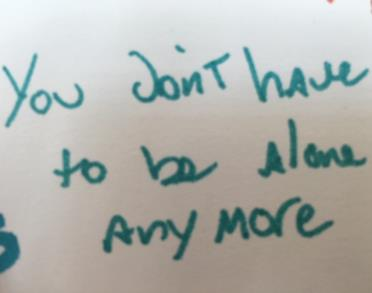 You Don't have
to be Alone
Any More